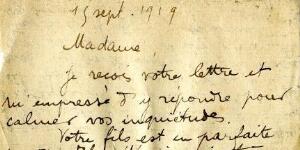 15 sept. 1919
Madame,
Je reçois votre lettre et
m'empresse d'y répondre pour
calmer vos inquiétudes.
Votre fils est en parfaite